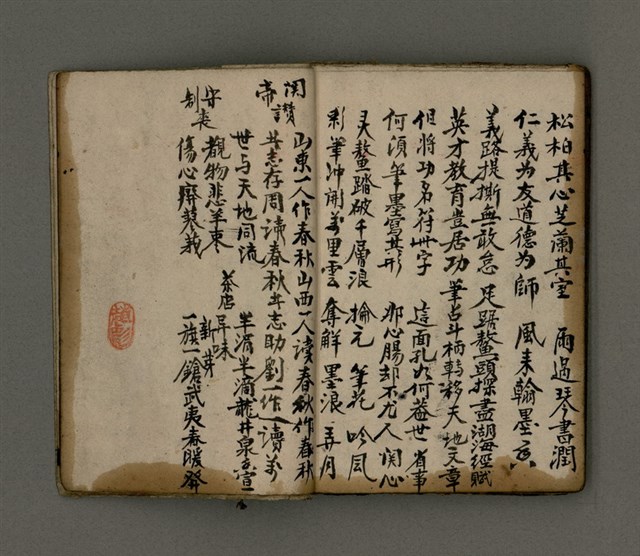 松柏其心芝蘭其室　雨過琴書潤
仁義為友道德為師　風来翰墨香
義路提撕無敢怠　足踏鰲頭探盡湖海經賦
英才教育豈居功　筆占斗柄轉移天地文章
但将功名符卌字　這面孔如何蓋世　省事
何須筆墨寫其形　那心腸却不尤人　関心
足鰲踏破千層浪　掄元　筆花　吟風
彩筆冲開萬里雲　奪鮮　墨浪　弄月
関帝讃
山東一人作春秋山西一人讀春秋作春秋
其志存周讀春秋其志助劉一作一讀万
世与天地同流
茶店
半滴半滴龍井泉
守制丧
覩物悲羊棗
新芽異味
一旗一鎗武夷春暖發
傷心廢蓼莪